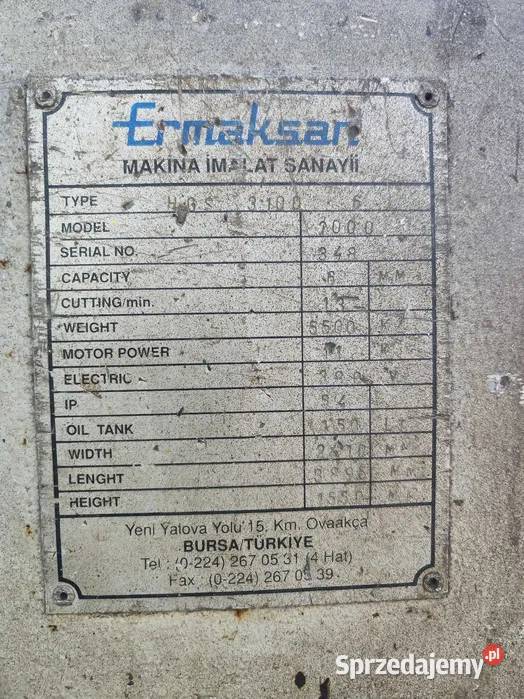 Ermaksan
MAKINA İMALAT SANAYİİ
TYPE HGS 3100 6
MODEL 2000
SERIAL NO. 348
CAPACITY 6 MM
CUTTING/min. 13
WEIGHT 5500 Kg
MOTOR POWER 11
ELECTRIC 380 V
IP 54
OIL TANK 150 Lt
WIDTH Mm
LENGHT Mm
HEIGHT 1550 Mm
Yeni Yalova Yolu 15. Km. Ovaakça
BURSA/TÜRKİYE
Tel : (0-224) 267 05 31 (4 Hat)
Fax : (0-224) 267 05 39
Sprzedajemy.pl